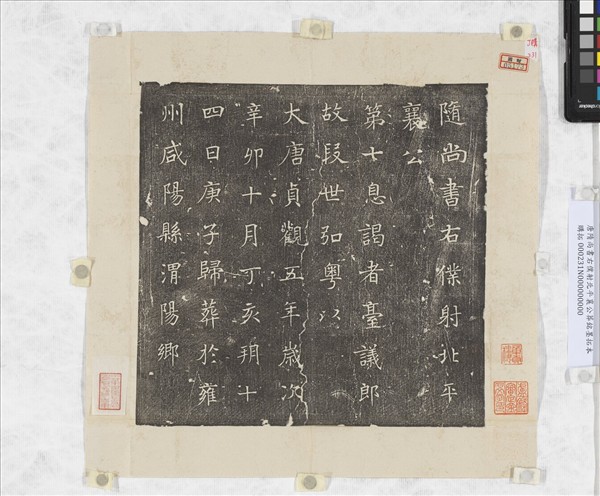 隨尚書右僕射北平
襄公
第七息謁者臺議郎
故段世弘粵以
大唐貞觀五年歲次
辛卯十月丁亥朔十
四日庚子歸葬於雍
州咸陽縣渭陽鄉
唐隋尚書右僕射北平襄公葬銘墨拓本
購拓 000231N000000000